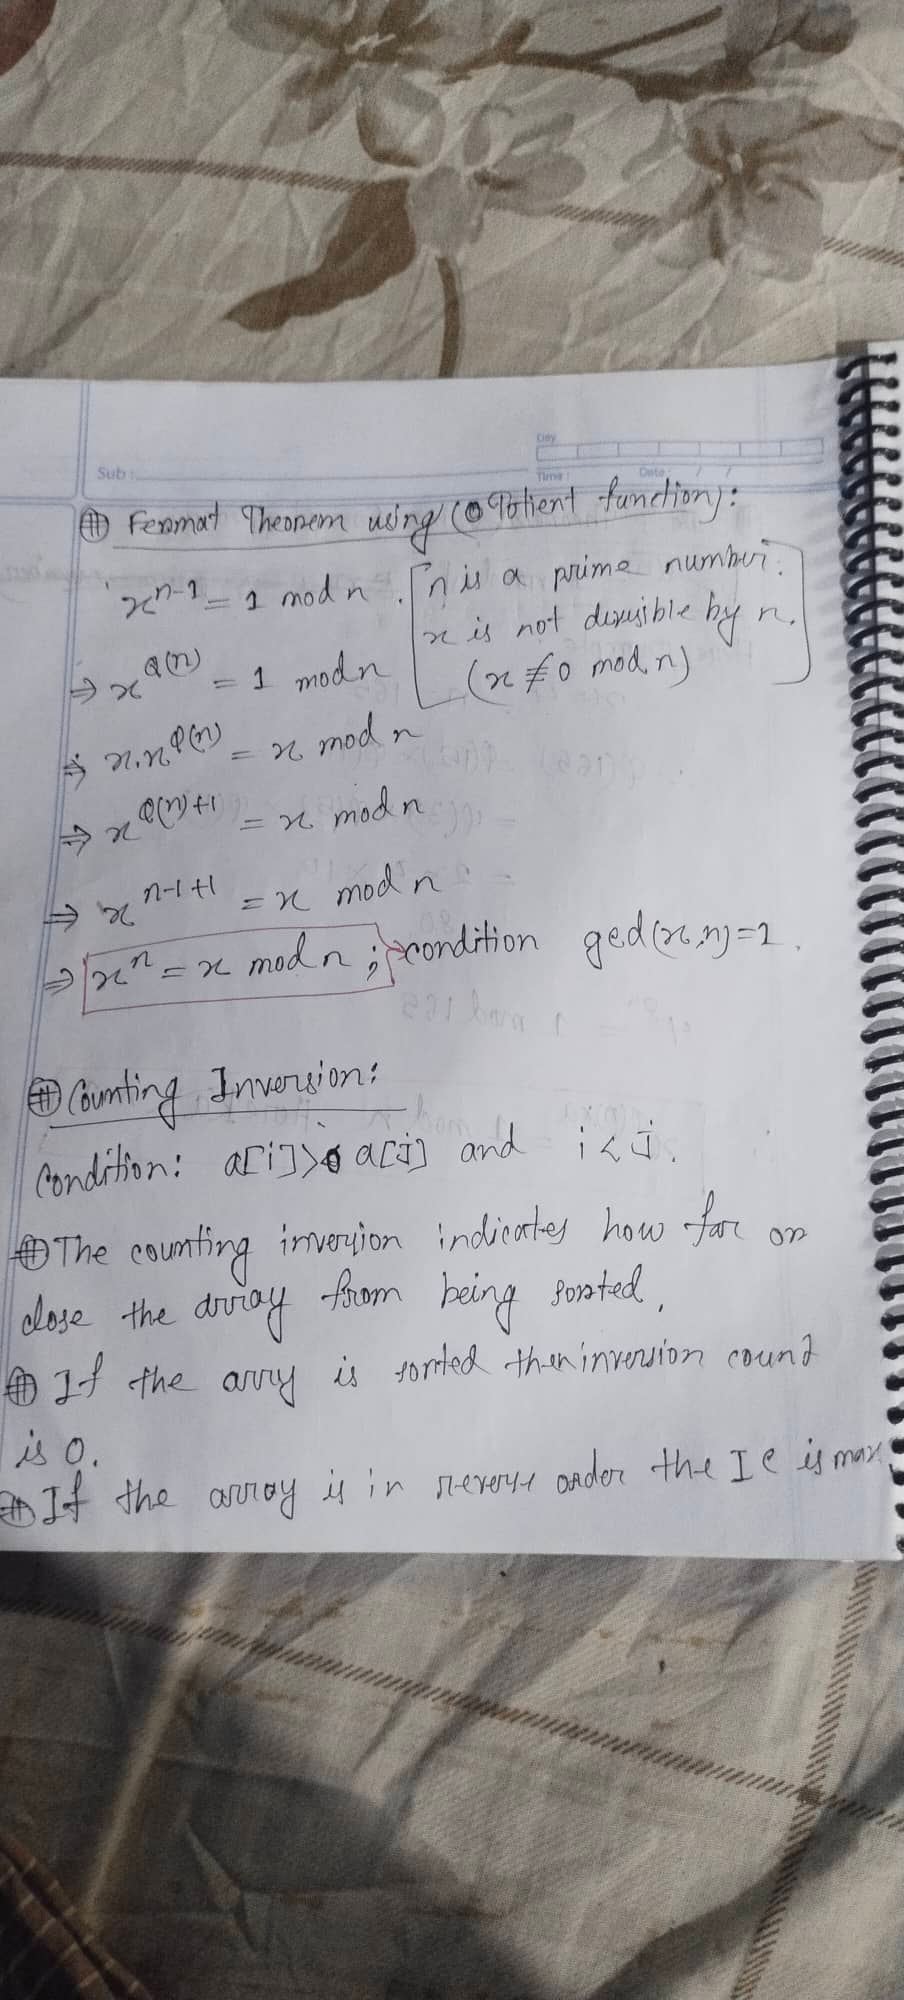 Day
Sub :
Time : Date : / /
# Fermat Theorem using (Totient function):
x^{n-1} = 1 mod n . [n is a prime number.
x is not divisible by n.
⇒ x^{φ(n)} = 1 mod n (x ≢ 0 mod n)]
⇒ x.x^{φ(n)} = x mod n
⇒ x^{φ(n)+1} = x mod n
⇒ x^{n-1+1} = x mod n
⇒ x^n = x mod n ; condition gcd(x,n)=1.
# Counting Inversion:
Condition: a[i]> a[j] and i<j.
# The counting inversion indicates how far or
close the array from being sorted.
# If the arry is sorted then inversion count
is 0.
# If the array is in reverse order the IC is max.